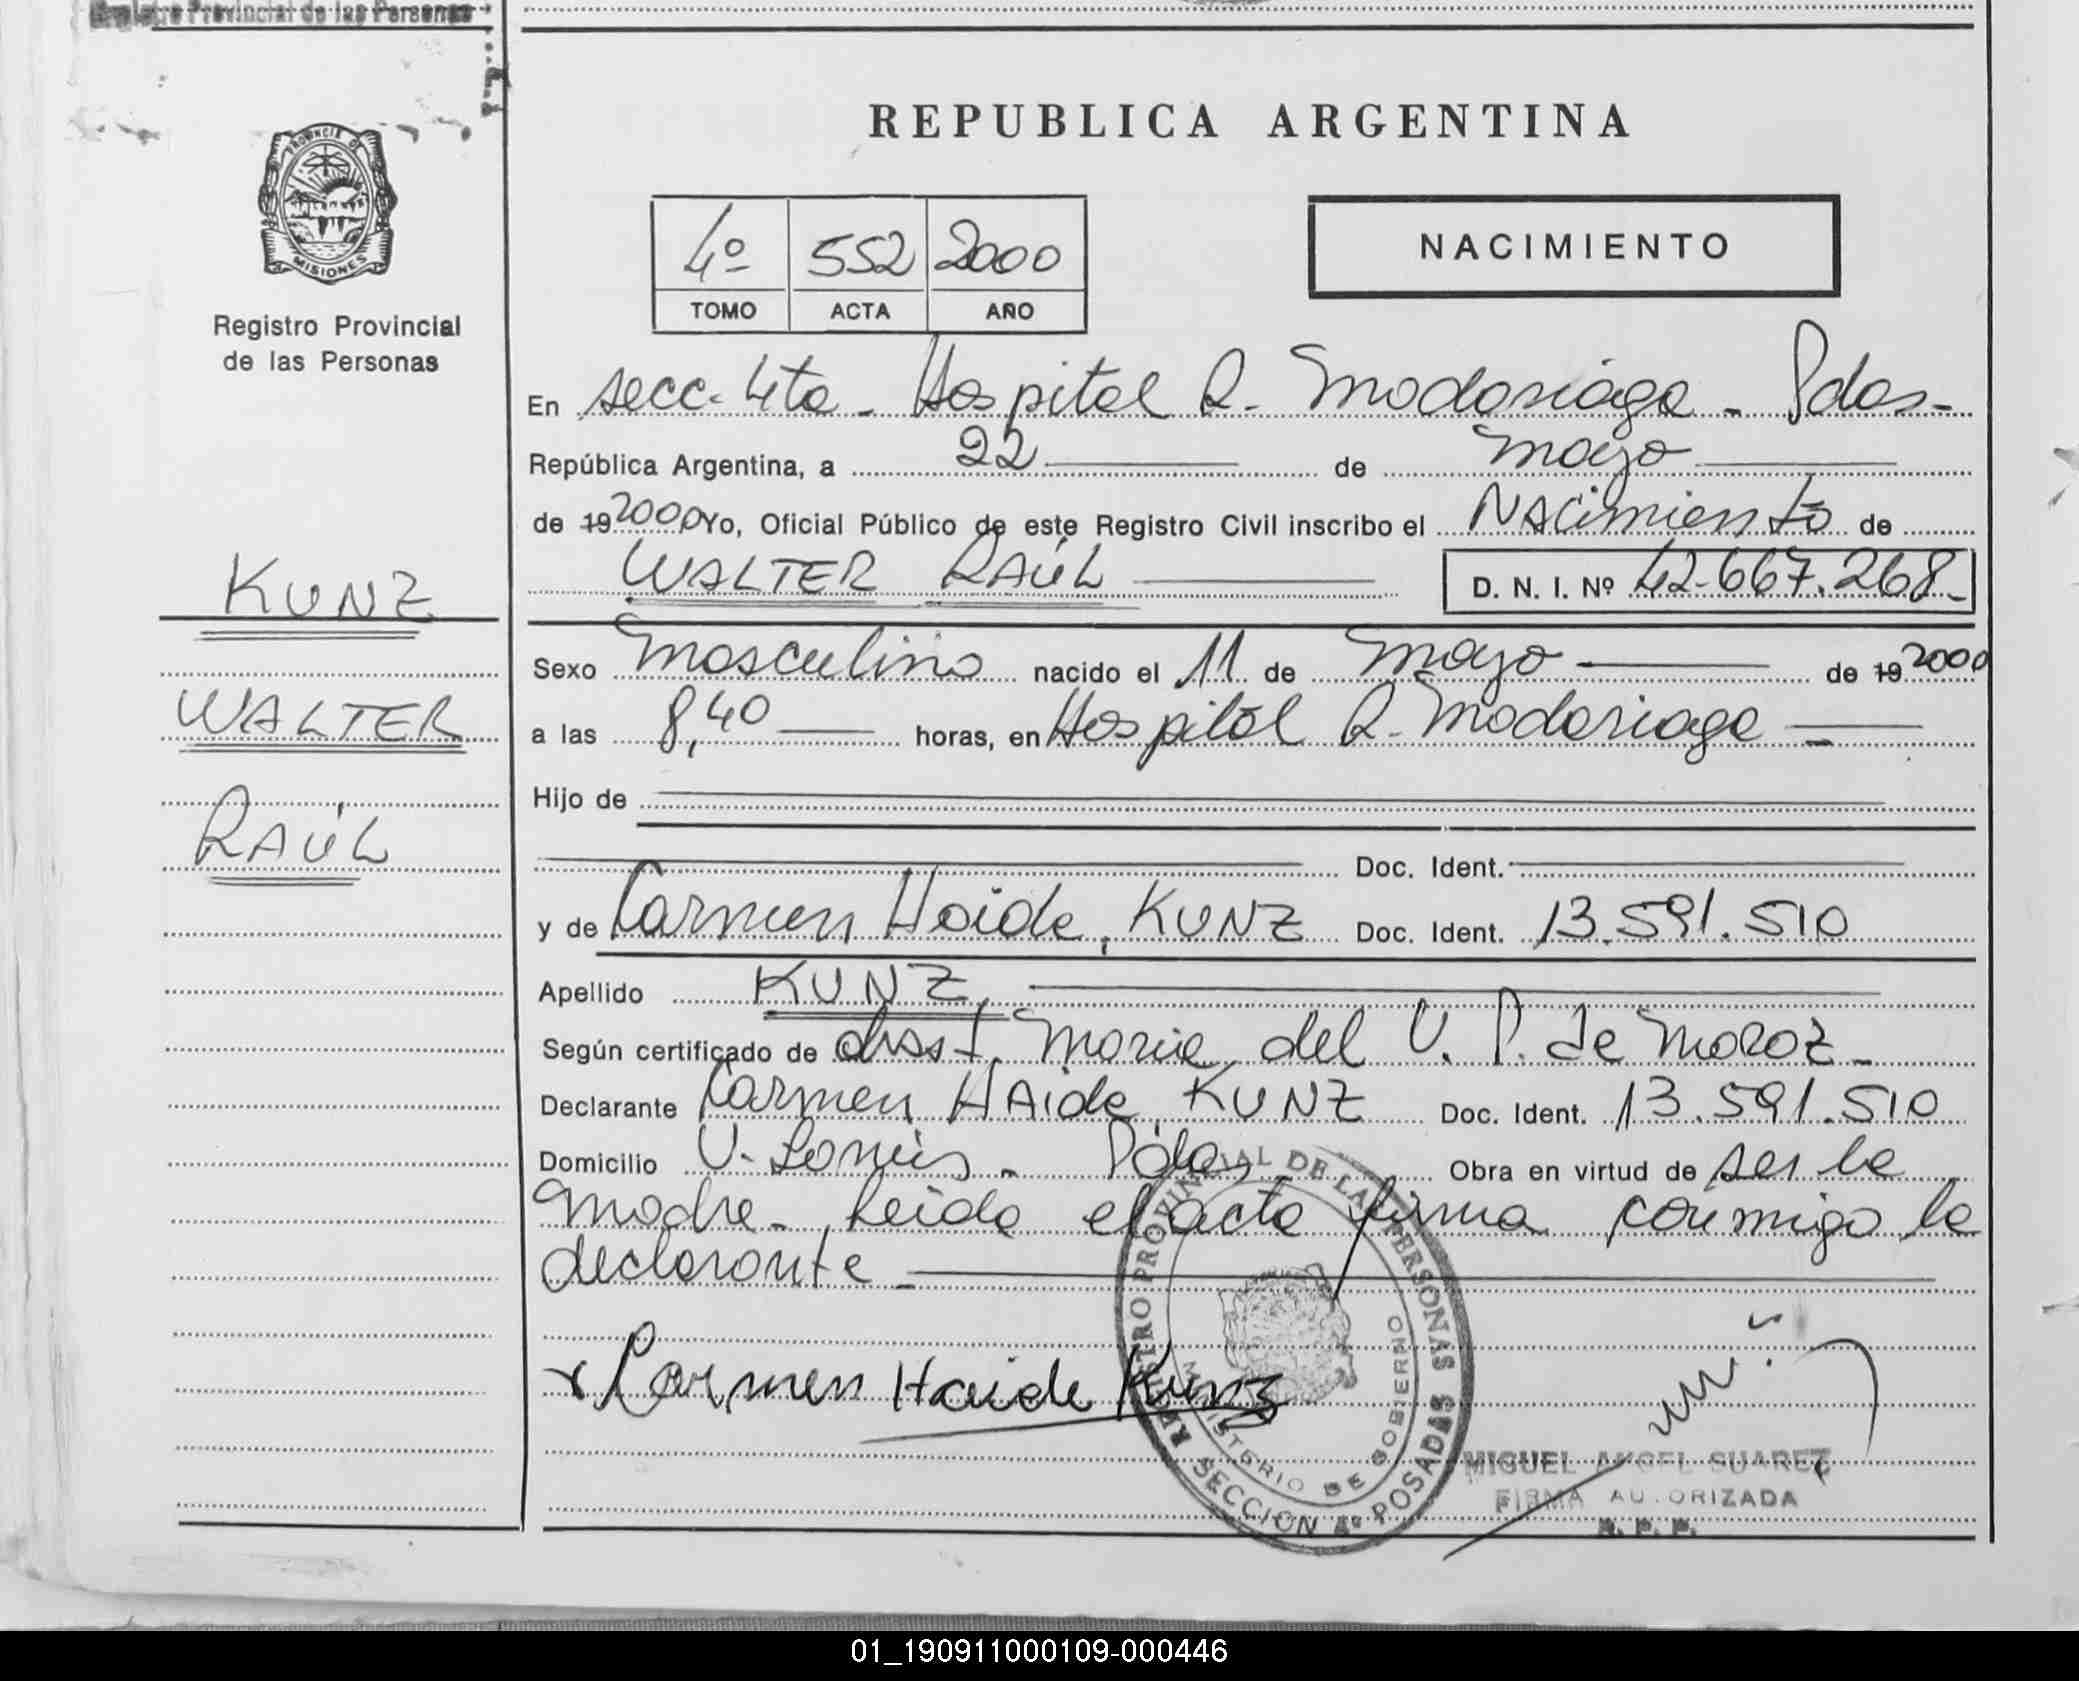 Registro Provincial de las Personas
REPUBLICA ARGENTINA
PROVINCIA DE
MISIONES
Registro Provincial
de las Personas
4º 552 2000
TOMO ACTA AÑO
NACIMIENTO
En secc. 4ta - Hospital R. Madariaga - Pdas-
República Argentina, a 22 de mayo
de 19 2000 Yo, Oficial Público de este Registro Civil inscribo el Nacimiento de
WALTER RAÚL D. N. I. Nº 42.667.268-
KUNZ
WALTER
RAÚL
Sexo masculino nacido el 11 de mayo de 19 2000
a las 8,40 horas, en Hospital R. Madariaga -
Hijo de
Doc. Ident.
y de Carmen Haide, KUNZ Doc. Ident. 13.591.510
Apellido KUNZ,
Según certificado de obsst. Maria del V. P. de Moroz -
Declarante Carmen HAide, KUNZ Doc. Ident. 13.591.510
Domicilio Pdas Obra en virtud de ser la
madre - Leida el acta firma conmigo la
declarante -
x Carmen Haide Kunz
REGISTRO PROVINCIAL DE LAS PERSONAS
MINISTERIO DE GOBIERNO
SECCION 4º POSADAS
MIGUEL ANGEL SUAREZ
FIRMA AUTORIZADA
R. P. P.
01_190911000109-000446